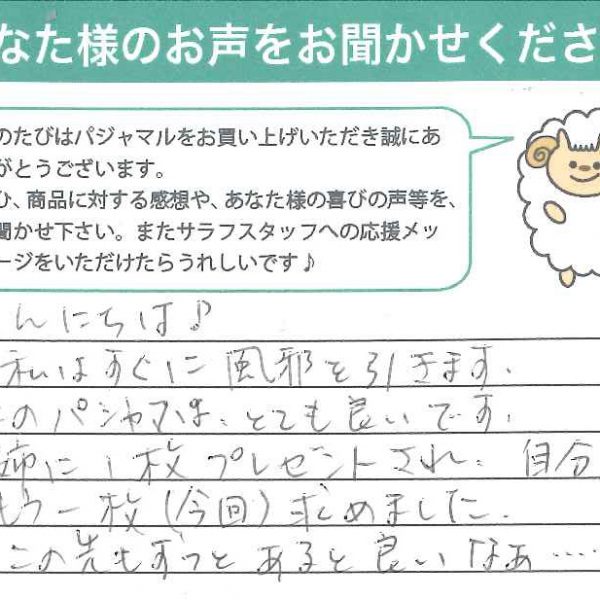 なた様のお声をお聞かせくださ
のたびはパジャマルをお買い上げいただき誠にあ
がとうございます。
ひ、商品に対する感想や、あなた様の喜びの声等を、
聞かせ下さい。またサラフスタッフへの応援メッ
ージをいただけたらうれしいです♪
んにちは♪
私はすぐに風邪を引きます.
のパジャマは、とても良いです.
姉に1枚プレゼントされ、自分
もう一枚(今回)求めました.
この先もずっとあると良いなぁ……